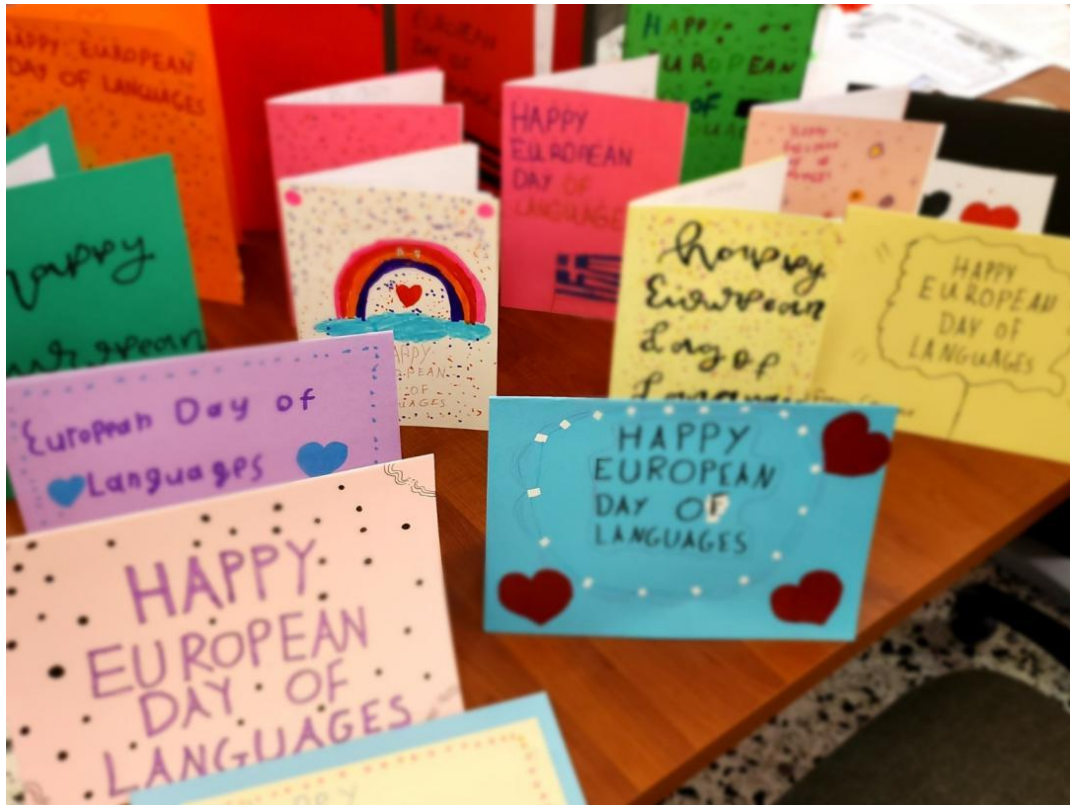 HAPPY EUROPEAN
DAY OF LANGUAGES
EUROPEAN
DAY OF
HAPPY
EUROPEAN
OF
HAPPY
EUROPEAN
DAY OF
LANGUAGES
happy
European
HAPPY
EUROPEAN
DAY OF
LANGUAGES
happy
European
Day of
HAPPY
EUROPEAN
DAY OF
LANGUAGES
European Day of
Languages
HAPPY
EUROPEAN
DAY OF
LANGUAGES
HAPPY
EUROPEAN
DAY OF
LANGUAGES